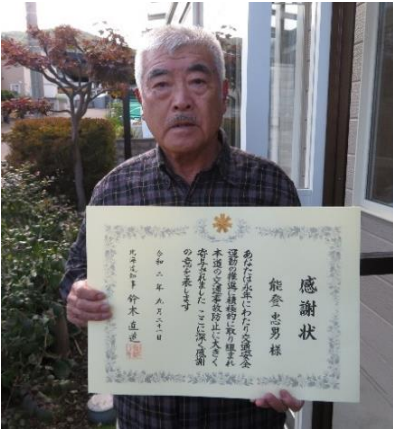 感謝状
能登忠男 様
あなたは永年にわたり交通安全
運動の推進に積極的に取り組まれ
本道の交通事故防止に大きく
寄与されました ここに深く感謝
の意を表します
令和二年九月二十一日
北海道知事 鈴木直道